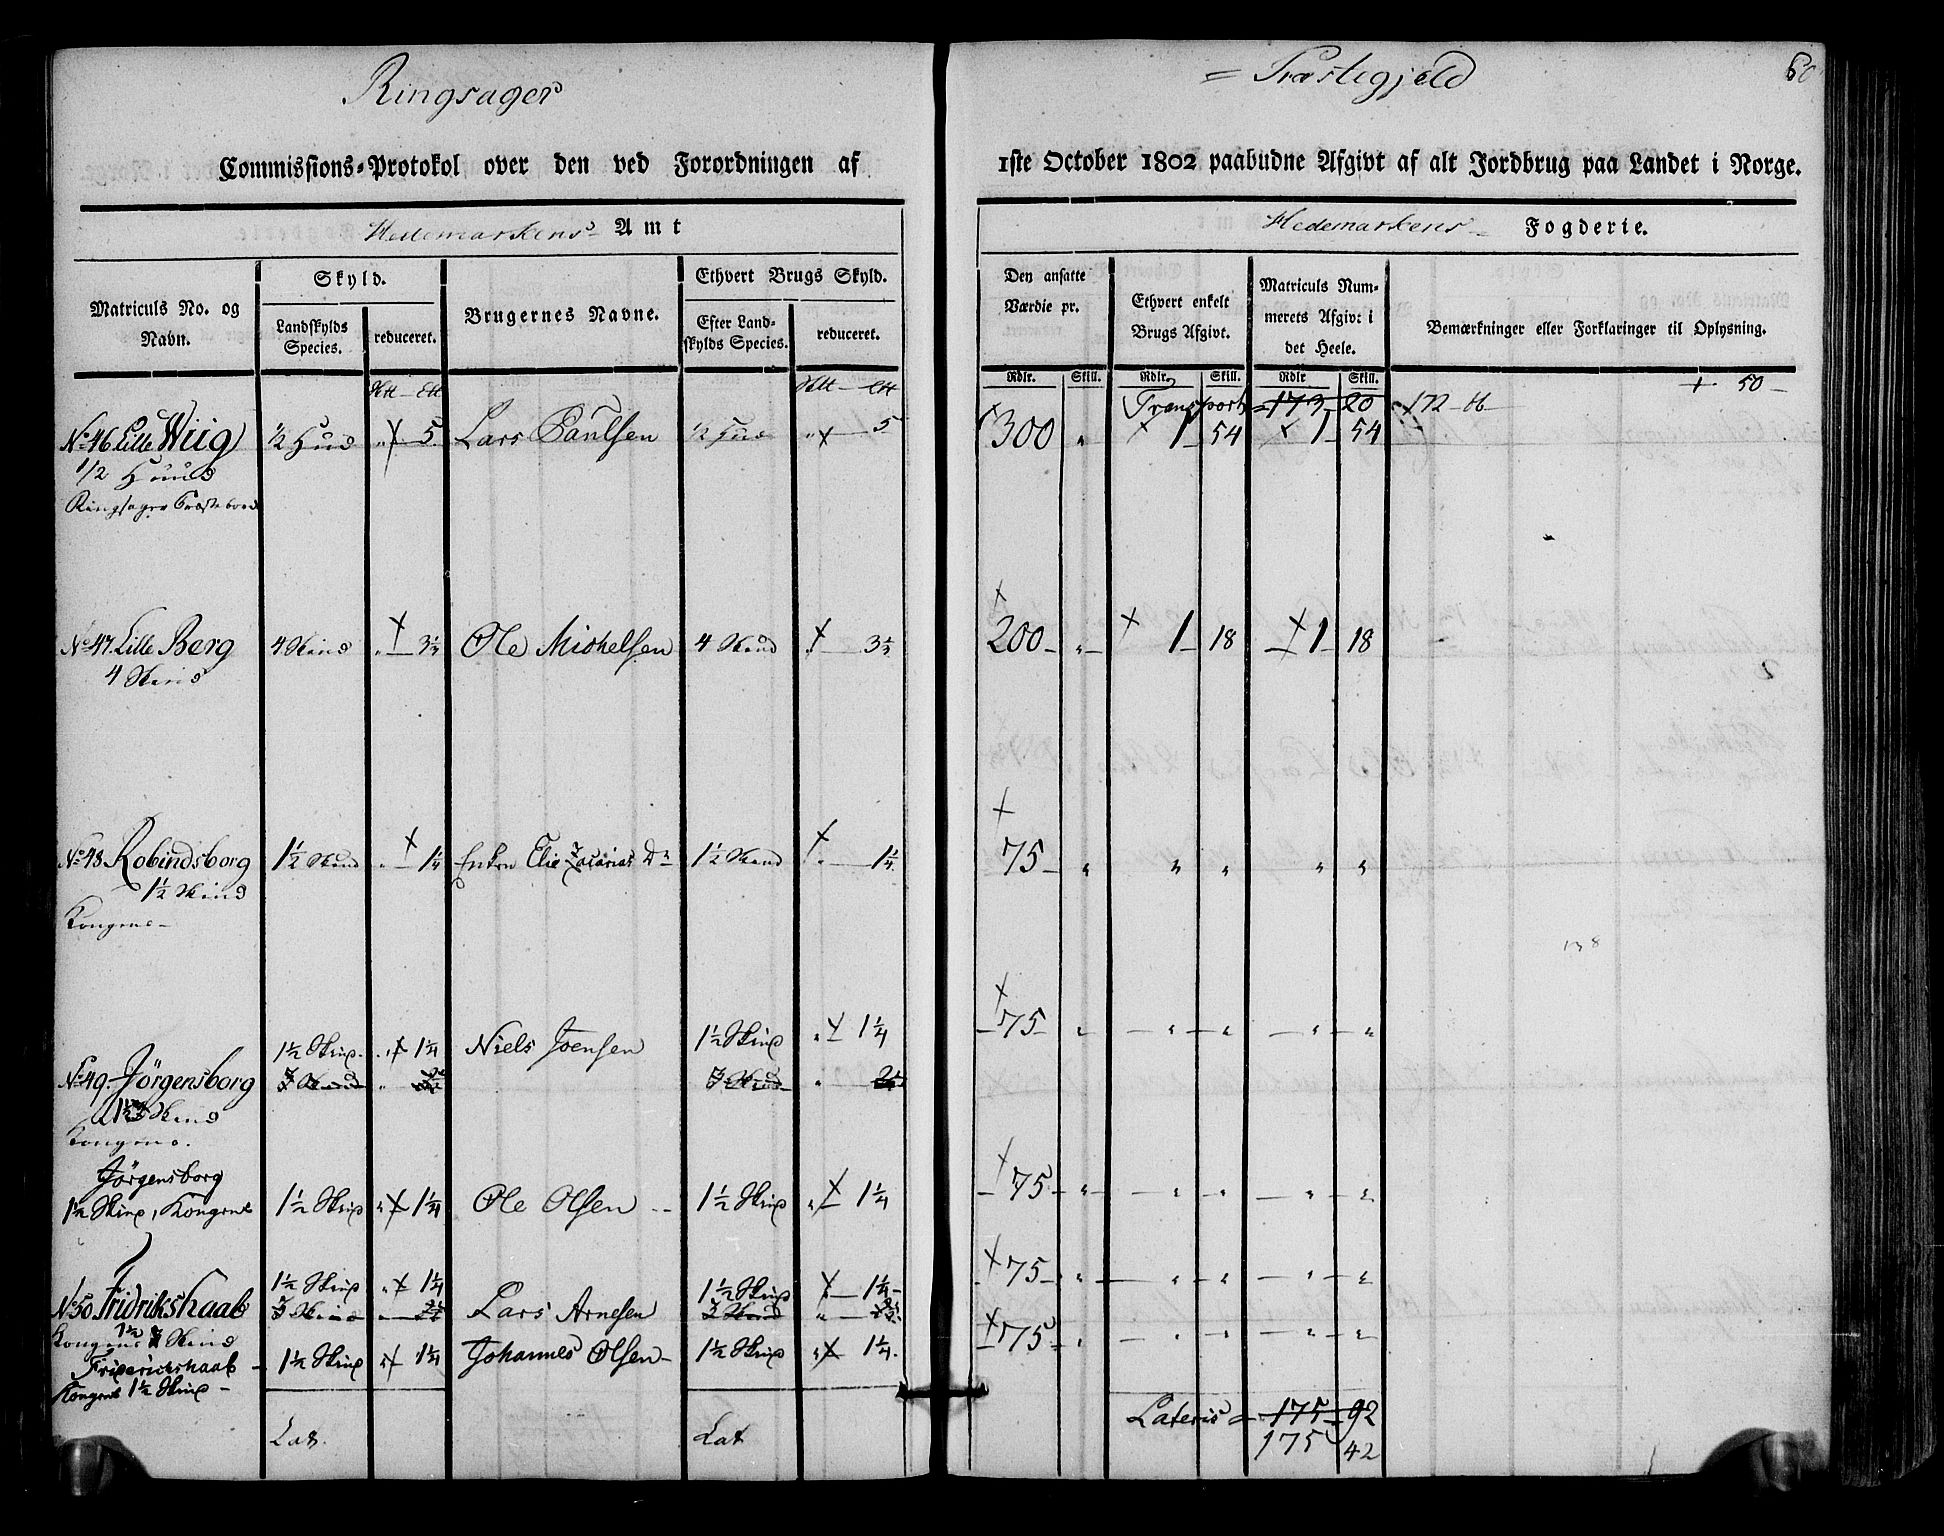 Ringsager = Præstegjeld 60
Commissions-Protokol over den ved Forordningen af 1ste October 1802 paabudne Afgivt af alt Jordbrug paa Landet i Norge.
Hedemarkens Amt
Hedemarkens Fogderie.
Matriculs No. og Navn.
Skyld.
Landskylds Species.
reduceret.
Brugernes Navne.
Ethvert Brugs Skyld.
Efter Landskylds Species.
reduceret.
Den ansatte Værdie pr.
Ethvert enkelt Brugs Afgivt.
Matriculs Nummerets Afgivt i det Heele.
Bemærkninger eller Forklaringer til Oplysning.
Rdlr. Skill. Rdlr. Skill. Rdlr Skill.
+ 50
Transport = 173 20 172 86
No 46 Lille Wiig ½ Hud " 5. Lars Paulsen ½ Hud " 5 300 " 1 54 1 54
1/2 Huud
Ringsager Præstebord
No 47. Lille Berg 4 Skind " 3⅓ Ole Michelsen 4 Skind " 3⅓ 200 " 1 18 1 18
4 Skind
No 48 Robindsborg 1½ Skind " 1¼ Enken Elie Zacarias Dr 1½ Skind " 1¼ 75 " " " " "
1½ Skind
Kongens
1½ Skind " 1¼ Niels Joensen 1½ Skind " 1¼ 75 " " " " "
No 49. Jörgensborg 3 Skind " 3 Skind "
1½ Skind
Kongens.
Jörgensborg
1½ Skind, Kongens 1½ Skind " 1¼ Ole Olsen 1½ Skind " 1¼ 75 " " " " "
1½ Skind " 1¼ 1½ Skind 1¼ 75 " " " " "
No 50 Fridrikshaab 3 Skind Lars Arnesen 3 Skind "
Kongens 1½ Skind
Friderichshaab 1½ Skind " 1¼ Johannes Olsen 1½ Skind " 1¼. 75 " " " " "
Kongens 1½ Skind
Lat. Lat Lateris = 175 92
175 42